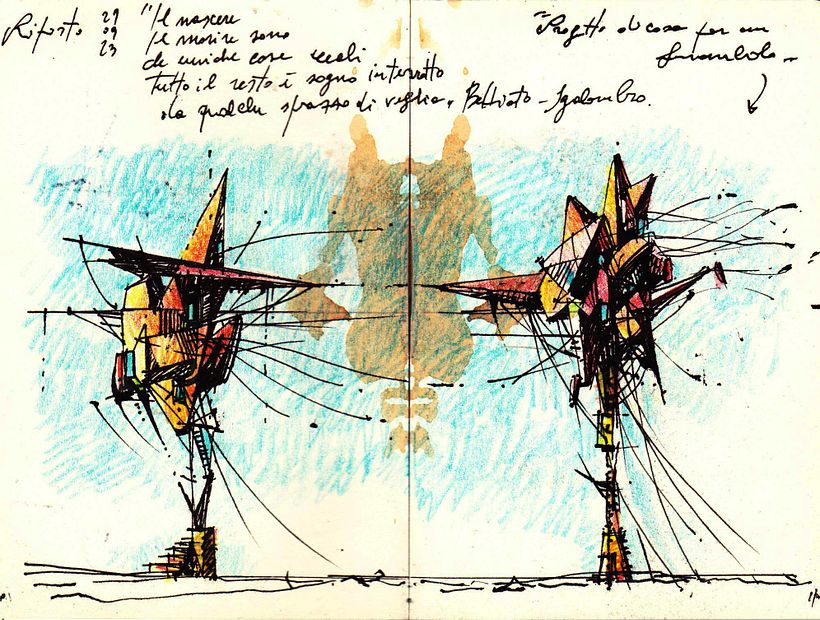 Riposto 29
09
23
"Il nascere
Il morire sono
le uniche cose reali
tutto il resto è sogno interrotto
da qualche sprazzo di veglia" Battiato - Sgalambro.
"Progetto di casa per un
funambolo -